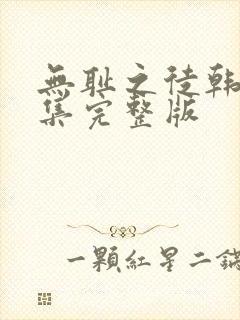 無耻之徒韩
集完整版
一顆红星二鍋